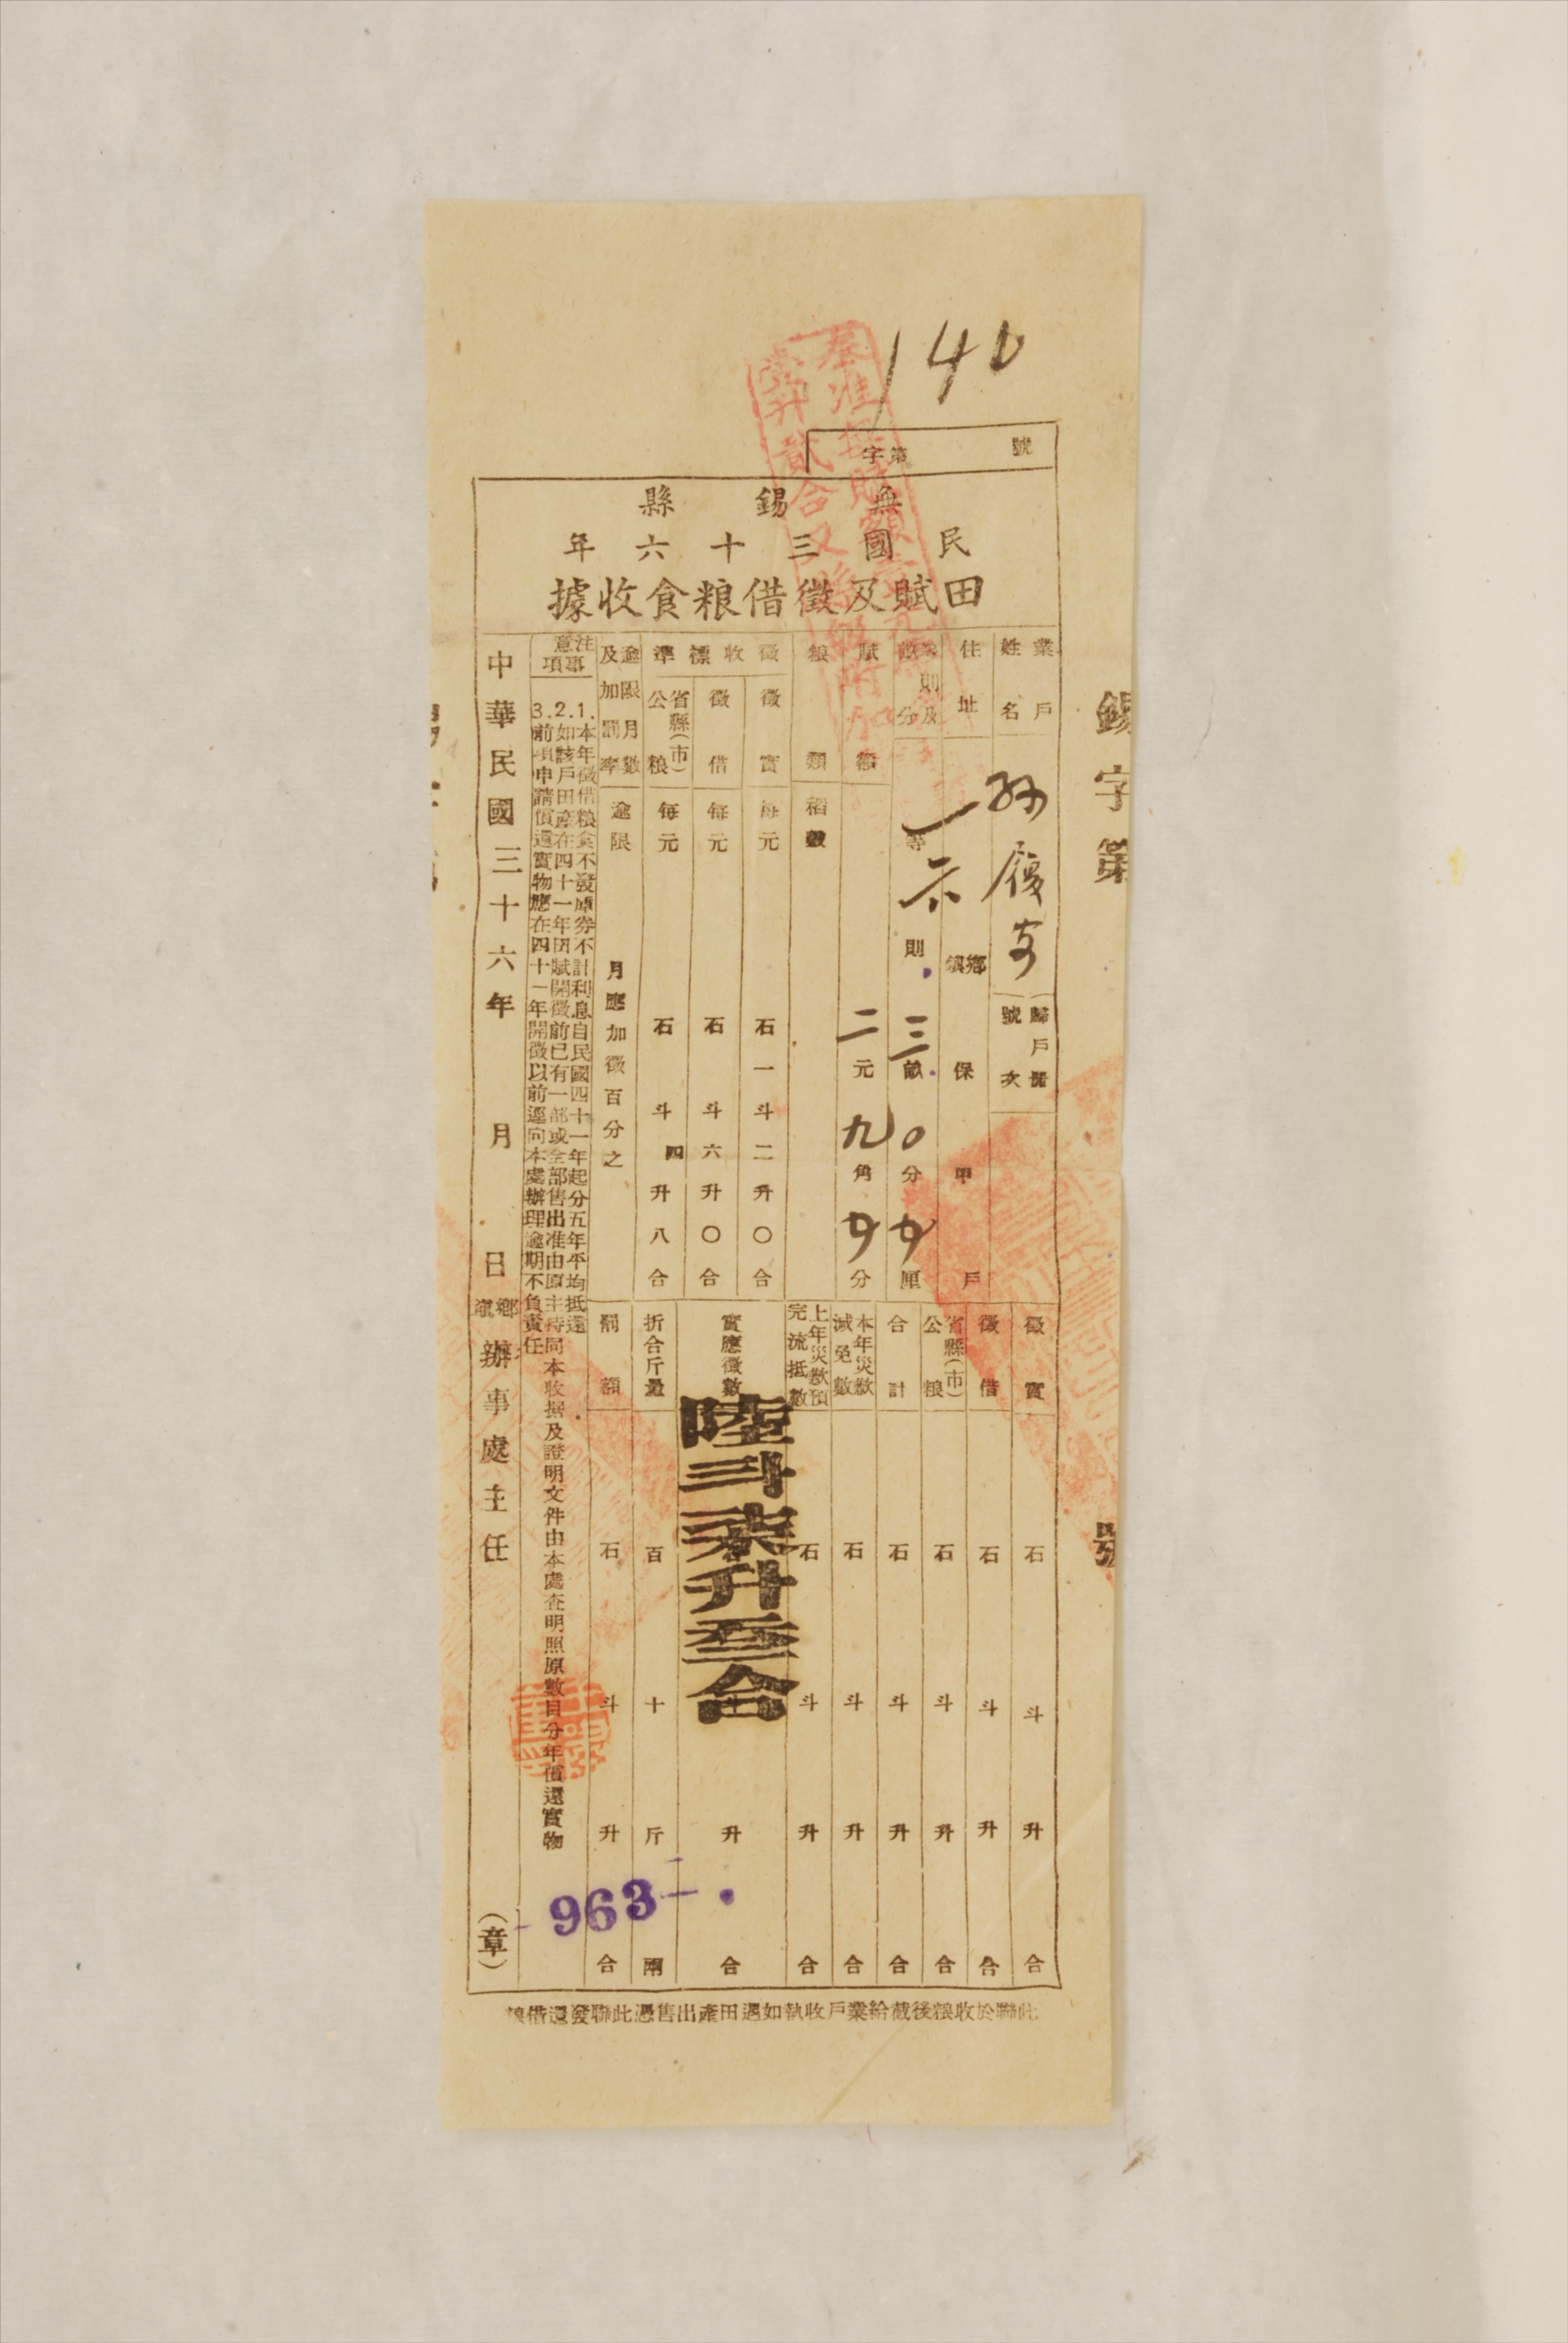 140
字第 號
無錫縣
民國三十六年
田賦及徵借粮食收據
錫字第 號
業戶姓名 孫履 歸戶冊號次
住址 鄉鎮 保 甲 戶
則及 分 一等 則 三畝〇分 厘
賦額 二元九角 分
粮類 稻穀
徵收標準
徵實 每元 石一斗二升〇合
徵借 每元 石 斗六升〇合
省縣(市)公粮 每元 石 斗四升八合
逾限月數及加罰率 逾限 月應加徵百分之
注意事項
1.本年徵借粮食不發原券不計利息自民國四十一年起分五年平均抵還
2.如該戶田產在四十一年田賦開徵前已有一部或全部售出准由原主持同本收据及證明文件由本處查明照原數目分年償還實物
3.前項申請償還實物應在四十一年開徵以前逕向本處辦理逾期不負責任
徵實 石 斗 升 合
徵借 石 斗 升 合
省縣(市)公粮 石 斗 升 合
合計 石 斗 升 合
本年災歉減免數 石 斗 升 合
上年災歉預完流抵數 石 斗 升 合
實應徵數 升 合
陸斗柒升叁合
折合斤量 百 十 斤 兩
罰額 石 斗 升 合
963
中華民國三十六年 月 日
鄉鎮辦事處主任 (章)
此聯於收粮後截給業戶收執如遇田產出售憑此聯發還借粮
奉准每賦額壹元
壹升貳合又縣級附加